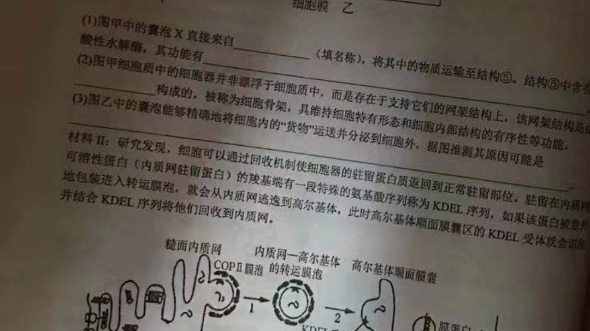 细胞膜 乙
(1)图甲中的囊泡X直接来自（填名称），将其中的物质运输至结构⑤。结构⑤中含有
酸性水解酶，其功能有
(2)图甲细胞质中的细胞器并非漂浮于细胞质中，而是存在于支持它们的网架结构上，该网架结构是由
构成的，被称为细胞骨架，具维持细胞特有形态和细胞内部结构的有序性等功能。
(3)图乙中的囊泡能够精确地将细胞内的“货物”运送并分泌到细胞外，据图推测其原因可能是
材料Ⅱ：研究发现，细胞可以通过回收机制使细胞器的驻留蛋白质返回到正常驻留部位。驻留在内质网
可溶性蛋白（内质网驻留蛋白）的羧基端有一段特殊的氨基酸序列称为KDEL序列，如果该蛋白被意外
地包装进入转运膜泡，就会从内质网逃逸到高尔基体，此时高尔基体顺面膜囊区的KDEL受体就会识别
并结合KDEL序列将他们回收到内质网。
糙面内质网 内质网—高尔基体 高尔基体顺面膜囊
COPⅡ膜泡 的转运膜泡
1
2
膜蛋白
KDEL